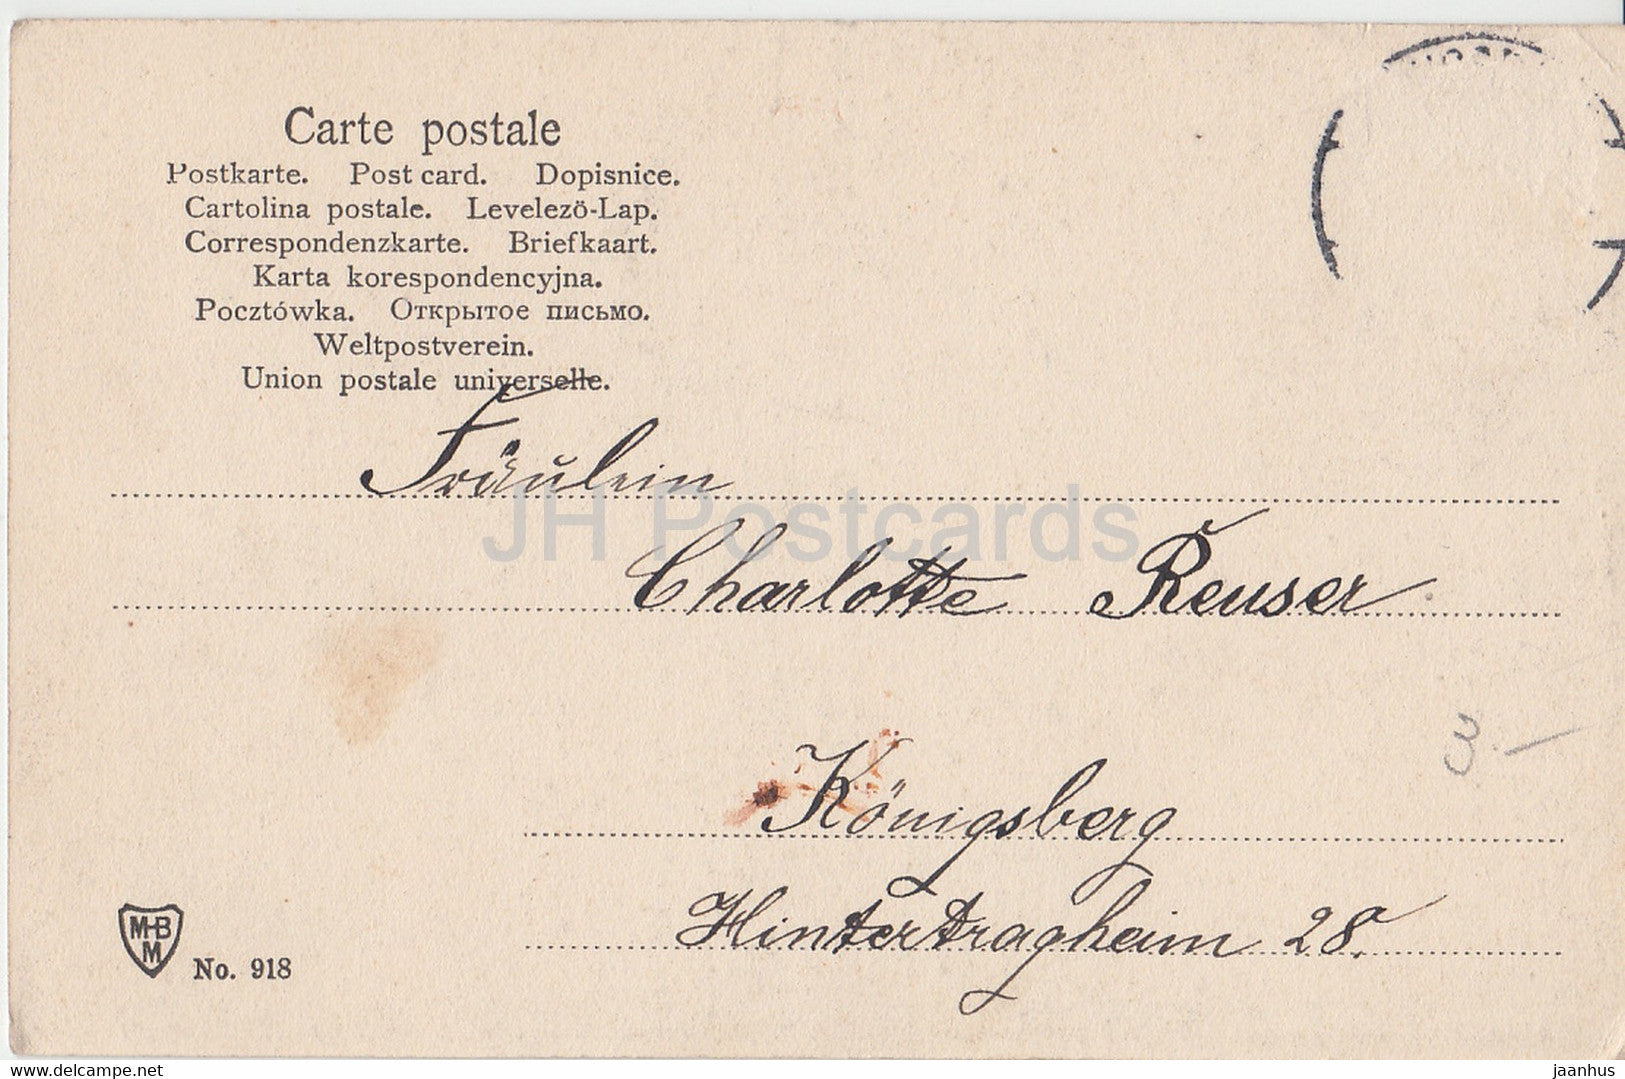 Carte postale
Postkarte. Post card. Dopisnice.
Cartolina postale. Levelezö-Lap.
Correspondenzkarte. Briefkaart.
Karta korespondencyjna.
Pocztówka. Открытое письмо.
Weltpostverein.
Union postale universelle.
Fräulein
JH Postcards
Charlotte Reuser
3.—
Königsberg
Hintertragheim 28.
M-B
M
No. 918
delcampe.net
jaanhus